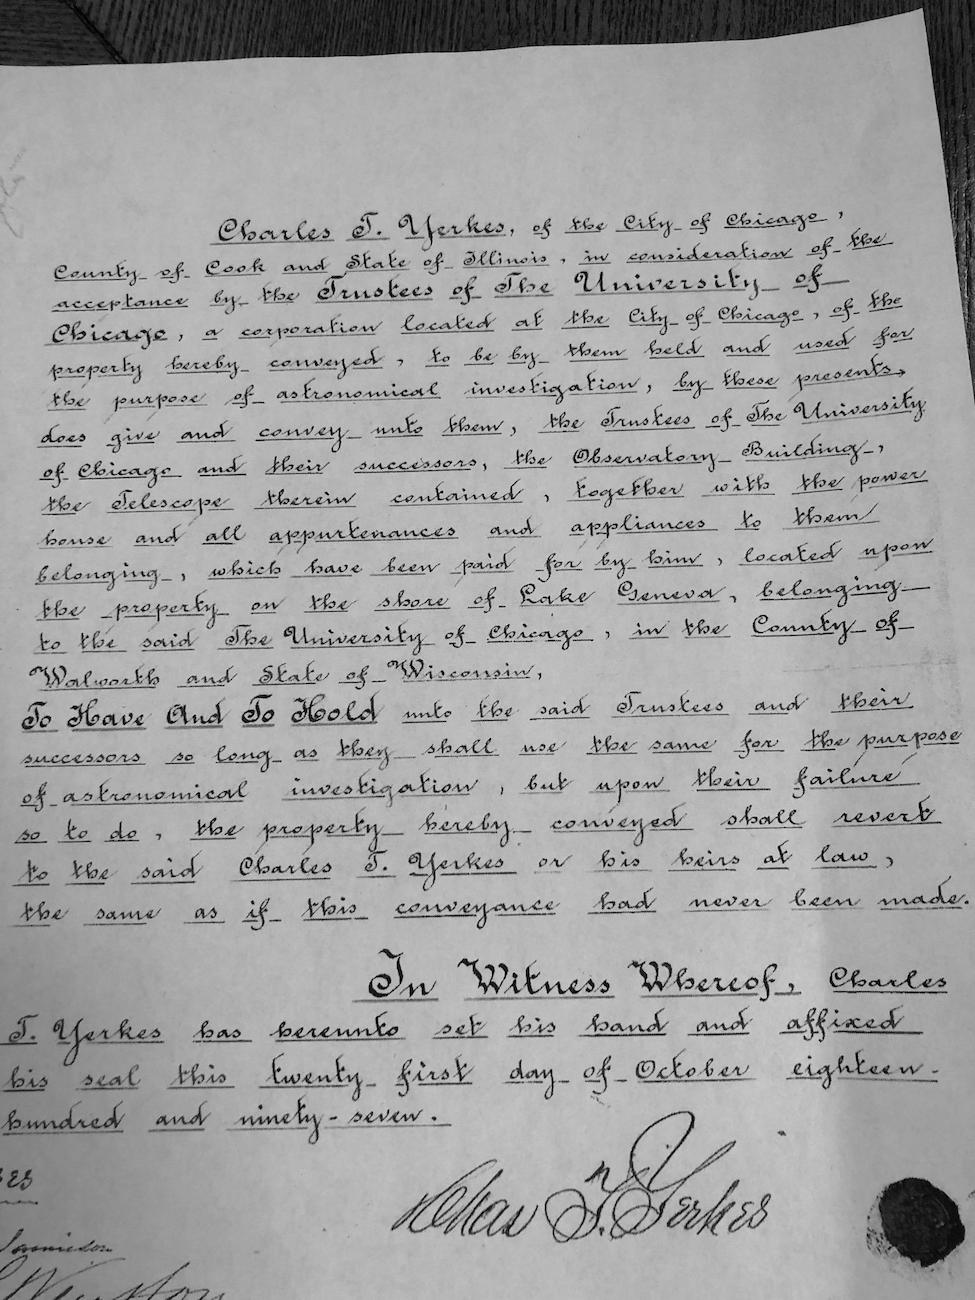 Charles T. Yerkes, of the City of Chicago,
County of Cook and State of Illinois, in consideration of the
acceptance by the Trustees of The University of
Chicago, a corporation located at the City of Chicago, of the
property hereby conveyed, to be by them held and used for
the purpose of astronomical investigation, by these presents,
does give and convey unto them, the Trustees of The University
of Chicago and their successors, the Observatory Building,
the Telescope therein contained, together with the power
house and all appurtenances and appliances to them
belonging, which have been paid for by him, located upon
the property on the shore of Lake Geneva, belonging
to the said The University of Chicago, in the County of
Walworth and State of Wisconsin,
To Have And To Hold unto the said Trustees and their
successors so long as they shall use the same for the purpose
of astronomical investigation, but upon their failure
so to do, the property hereby conveyed shall revert
to the said Charles T. Yerkes or his heirs at law,
the same as if this conveyance had never been made.
In Witness Whereof, Charles
T. Yerkes has hereunto set his hand and affixed
his seal this twenty first day of October eighteen-
hundred and ninety-seven.
Chas T. Yerkes